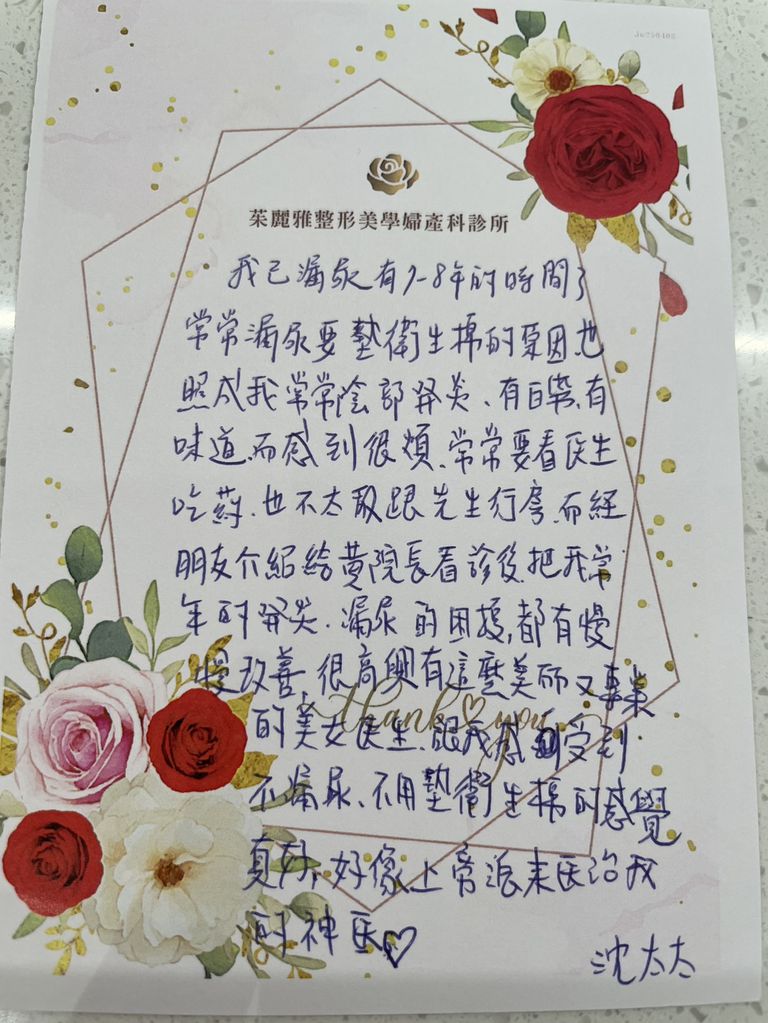 Ju250408
茱麗雅整形美學婦產科診所
我已漏尿有7-8年的時間了
常常漏尿要墊衛生棉的原因也
照成我常常陰部發炎、有白帶、有
味道、而感到很煩、常常要看医生
吃葯、也不太敢跟先生行房、而經
朋友介紹給黃院長看診後、把我常
年的發炎、漏尿的困擾、都有慢
慢改善、很高興有這麼美麗又專業
的美女医生、讓我感受到
不漏尿、不用墊衛生棉的感覺
真好、好像上帝派來医治我
的神医♡
Thank you
沈太太